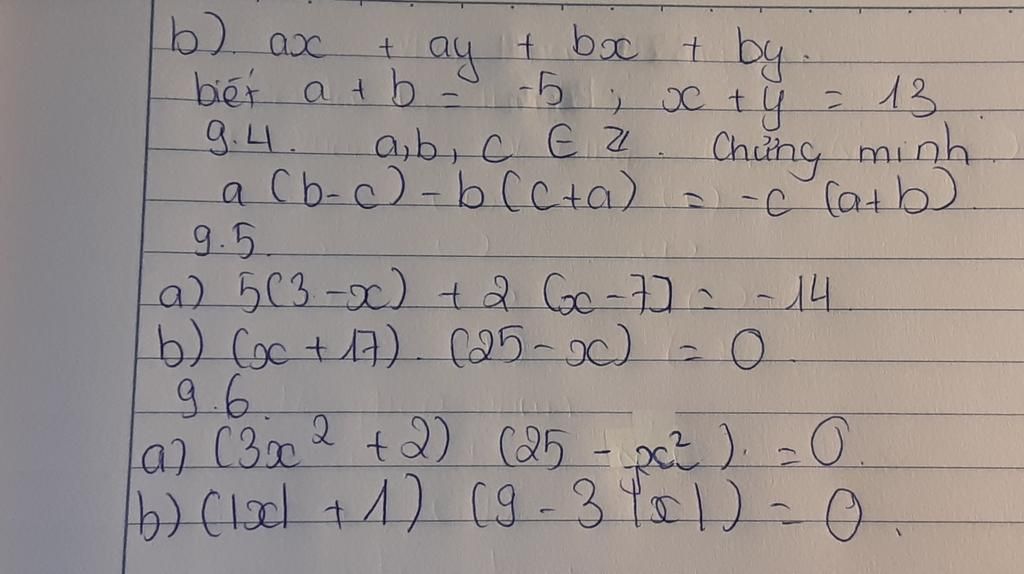 b) ax + ay + bx + by.
biết a + b = -5 ; x + y = 13
9.4. a,b, c ∈ Z. Chứng minh
a (b-c) - b (c+a) = -c (a+b)
9.5.
a) 5(3-x) + 2 (x-7) = -14
b) (x + 17) . (25 - x) = 0
9.6.
a) (3x² + 2) (25 - x²) . = 0.
b) (|x| + 1) (9 - 3|x|) = 0.